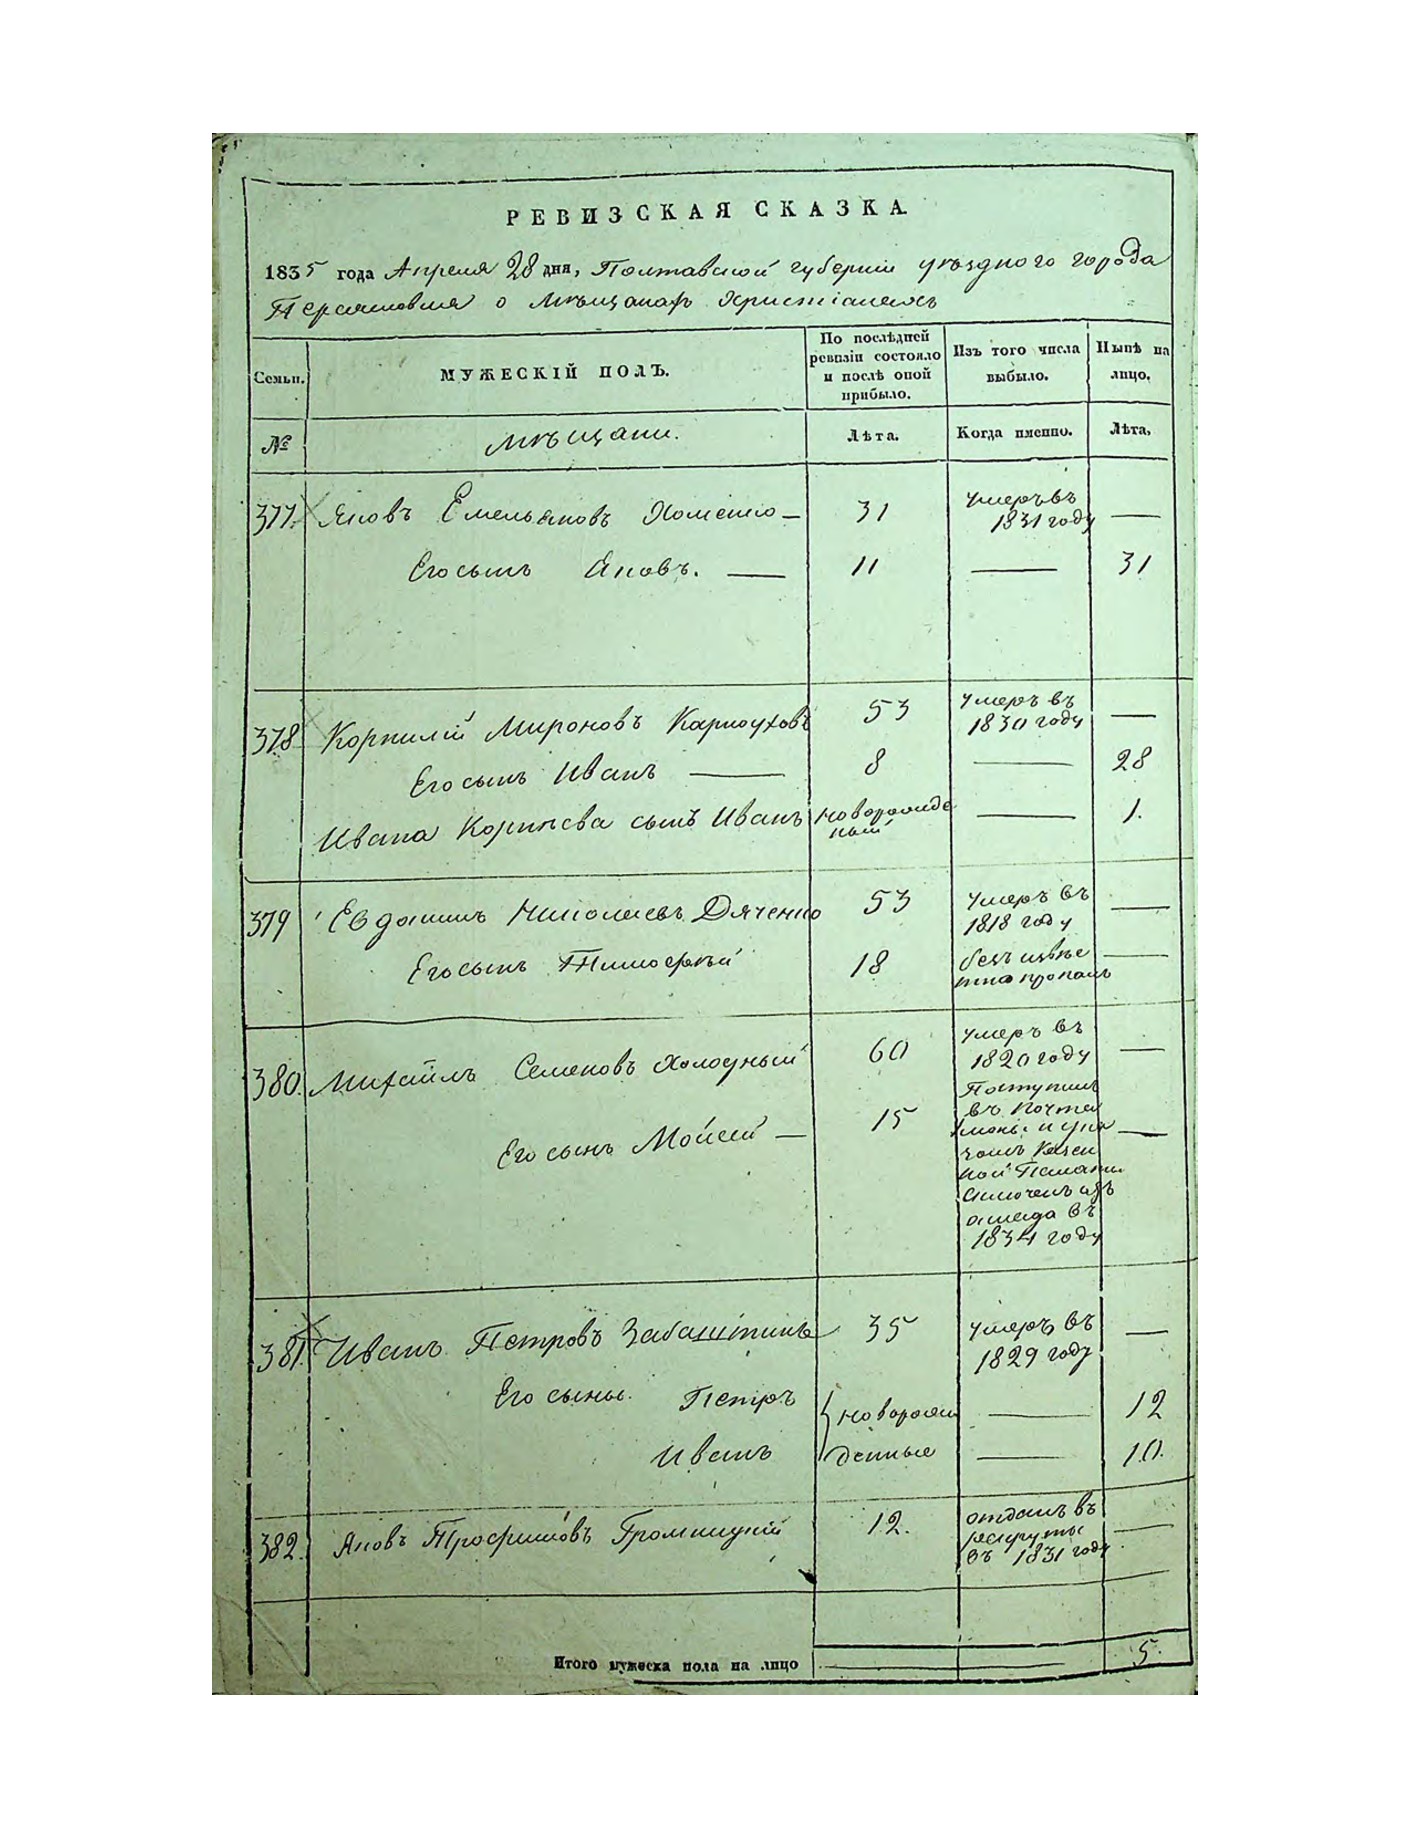 РЕВИЗСКАЯ СКАЗКА.
1835 года Апреля 28 дня, Полтавской губернии уѣзднаго города
Переяславля о мѣщанахъ Христіанахъ
Семьи. МУЖЕСКІЙ ПОЛЪ. По послѣдней ревизіи состояло и послѣ оной прибыло. Изъ того числа выбыло. Нынѣ на лицо.
№ мѣщани. Лѣта. Когда именно. Лѣта.
377. Яковъ Емельяновъ Хоменко — 31 умеръ въ 1831 году —
Его сынъ Яковъ. — 11 — 31
378 Корнилій Мироновъ Карпоуховъ 53 умеръ въ 1830 году —
Его сынъ Иванъ — 8 — 28
Ивана Корнѣева сынъ Иванъ новорожденый — 1.
379 Евдокимъ Николаевъ Дяченко 53 умеръ въ 1818 году —
Его сынъ Тимофѣй 18 безъ извѣстно пропалъ —
380. Михайлъ Семеновъ Холодный 60 умеръ въ 1820 году —
Его сынъ Мойсей — 15 Поступилъ
въ почта
чомъ Казен
ной Палаты
изключенъ изъ
оклада въ
1834 году —
381. Иванъ Петровъ Забаштинъ 35 умеръ въ 1829 году —
Его сыны. Петръ новорож — 12
Иванъ денные — 10.
382. Яковъ Трофимовъ Громницкій 12. отданъ въ рекруты въ 1831 году —
Итого мужеска пола на лицо 5.